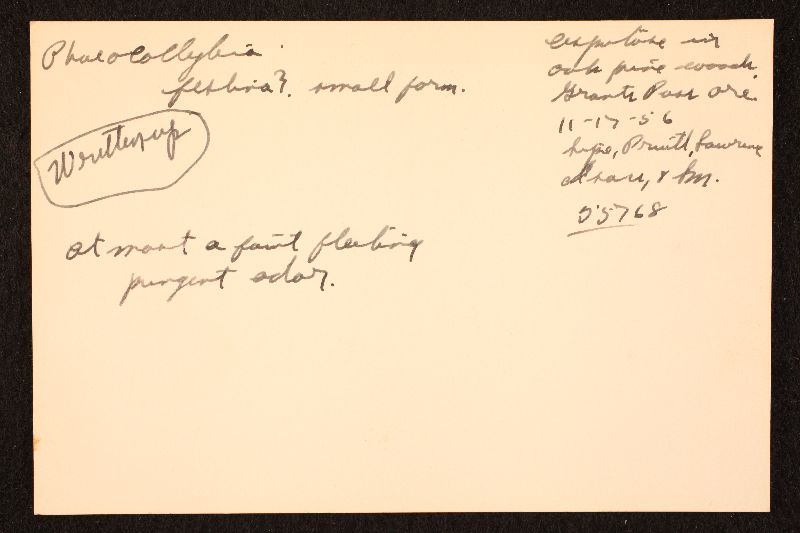 Phaeocollybia
festiva? small form.
Written up
at most a faint fleeting
pungent odor.
cespitose in
oak pine woods
Grants Pass Ore.
11-17-56
Pruitt, Lawrence
& Sm.
55768